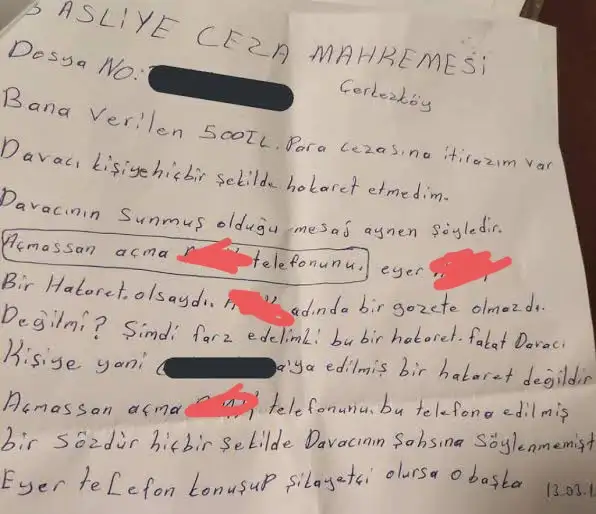 3 ASLİYE CEZA MAHKEMESİ
Dosya NO:
Çerkezköy
Bana Verilen 500TL. Para cezasına itirazım var
Davacı kişiye hiçbir şekilde hakaret etmedim.
Davacının Sunmuş olduğu mesaj aynen şöyledir.
Açmassan açma telefonunu, eyer
Bir Hakaret olsaydı. adında bir gazete olmazdı.
Değilmi? Şimdi farz edelimki bu bir hakaret. fakat Davacı
Kişiye yani a'ya edilmiş bir hakaret değildir
Açmassan açma telefonunu. bu telefona edilmiş
bir sözdür hiçbir şekilde Davacının Şahsına Söylenmemişt
Eyer telefon konuşup şikayetçi olursa o başka
13.03.1